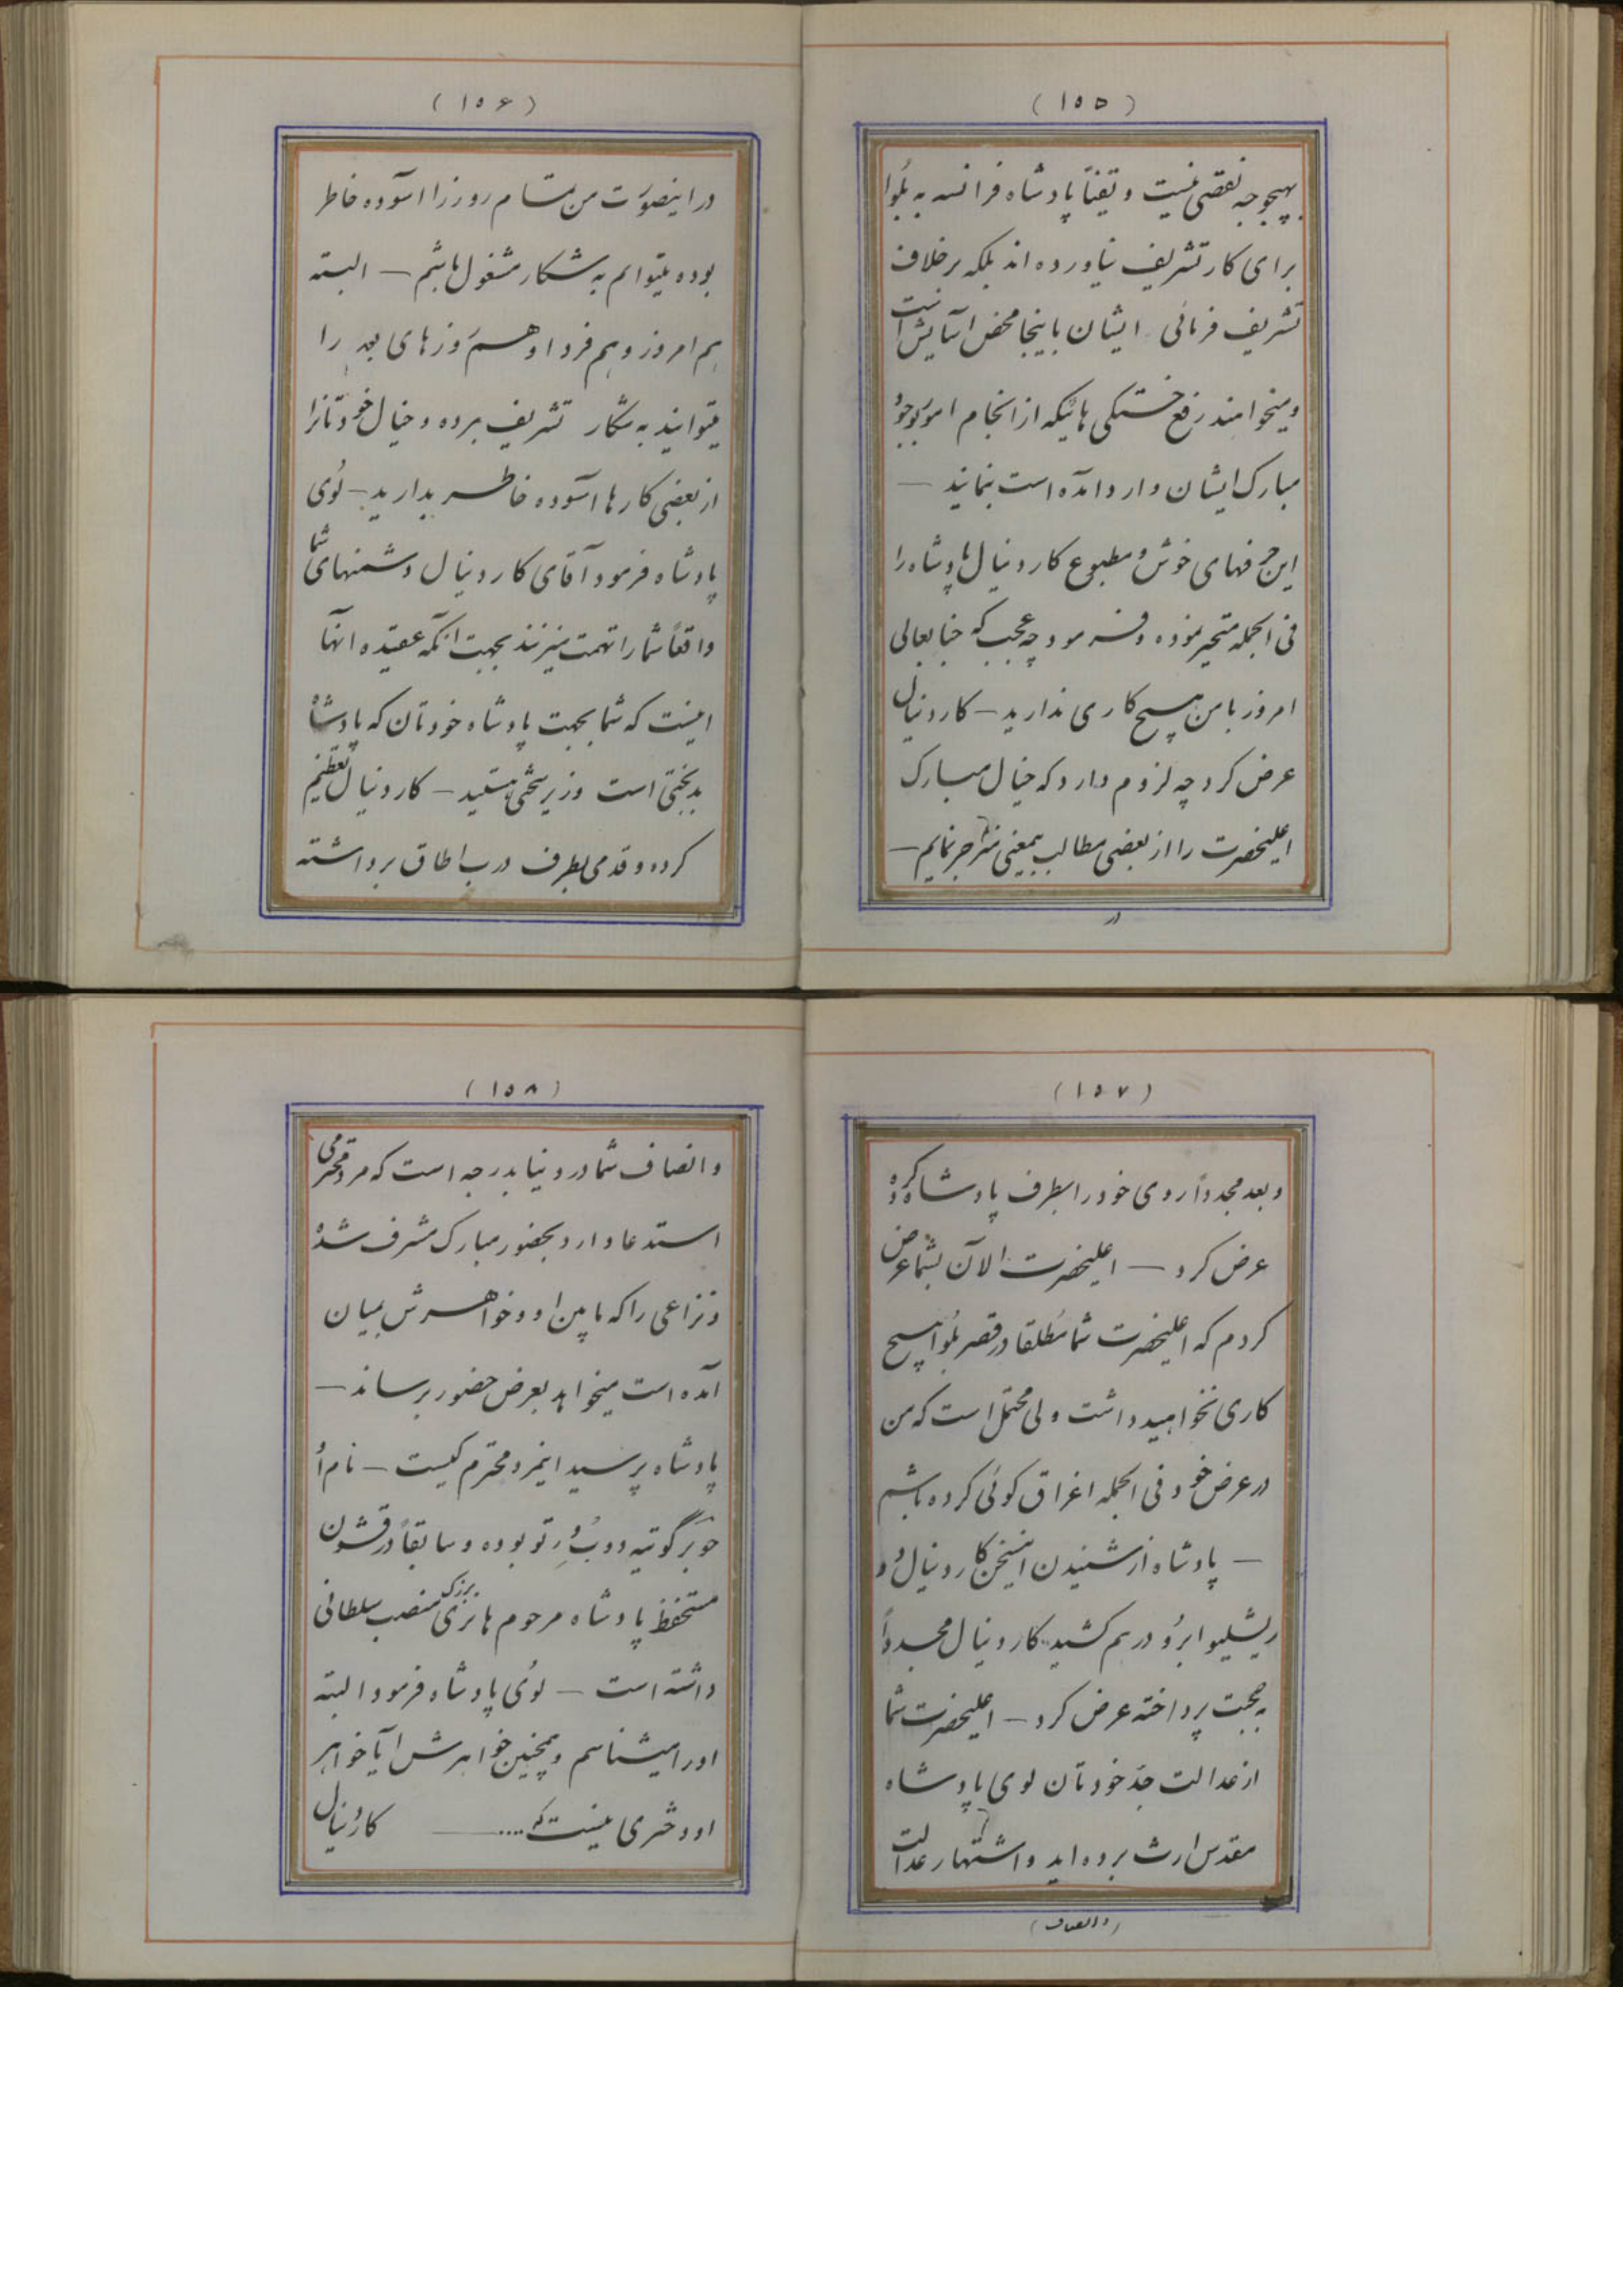 (۱۵۵)
بهیچوجه نقصی نیست و یقیناً پادشاه فرانسه به بلوا
برای کار تشریف نیاورده اند بلکه برخلاف
تشریف فرمائی ایشان باینجا محض آسایش است
و میخواهند رفع خستگی هائیکه از انجام امور بوجود
مبارک ایشان وارد آمده است بنمایند —
این حرفهای خوش و مطبوع کاردنیال پادشاه را
فی الجمله متحیر نموده و فرمود چه عجب که جنابعالی
امروز با من هیچ کاری ندارید — کاردنیال
عرض کرد چه لزوم دارد که خیال مبارک
اعلیحضرت را از بعضی مطالب بیمعنی منزجر نمایم —
در
(۱۵۶)
در اینصورت من تمام روز را آسوده خاطر
بوده میتوانم به شکار مشغول باشم — البته
هم امروز و هم فردا و هم روزهای بعد را
میتوانید به شکار تشریف برده و خیال خودتانرا
از بعضی کارها آسوده خاطر بدارید — لوئی
پادشاه فرمود آقای کاردنیال دشمنهای شما
واقعاً شما را تهمت میزنند بجهت آنکه عقیده آنها
اینست که شما بجهت پادشاه خودتان که پادشاه
بدبختی است وزیر سختی هستید — کاردنیال تعظیم
کرده و قدمی بطرف درب اطاق برداشته
(۱۵۷)
و بعد مجدداً روی خود را بطرف پادشاه کرده و
عرض کرد — اعلیحضرت الآن بشما عرض
کردم که اعلیحضرت شما مطلقا در قصر بلوا هیچ
کاری نخواهید داشت ولی محتمل است که من
در عرض خود فی الجمله اغراق گوئی کرده باشم
— پادشاه از شنیدن اینسخن کاردنیال دو
ریشلیو ابرو درهم کشید کاردنیال مجدداً
به صحبت پرداخته عرض کرد — اعلیحضرت شما
از عدالت جد خودتان لوی پادشاه
مقدس ارث برده اید و اشتهار عدالت
(و انصاف)
(۱۵۸)
و انصاف شما در دنیا بدرجه است که مرد محترمی
استدعا دارد بحضور مبارک مشرف شده
و نزاعی را که مابین او و خواهرش بمیان
آمده است میخواهد بعرض حضور برساند —
پادشاه پرسید اینمرد محترم کیست — نام او
گوتیه دو بوده و سابقاً در قشون
مستحفظ پادشاه مرحوم هانری بزرگ منصب سلطانی
داشته است — لوئی پادشاه فرمود البته
او را میشناسم و همچنین خواهرش آیا خواهر
او دختری نیست که .... — کاردنیال